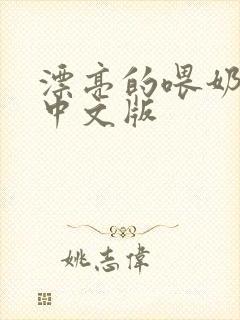 漂亮的喂奶
中文版
姚志偉